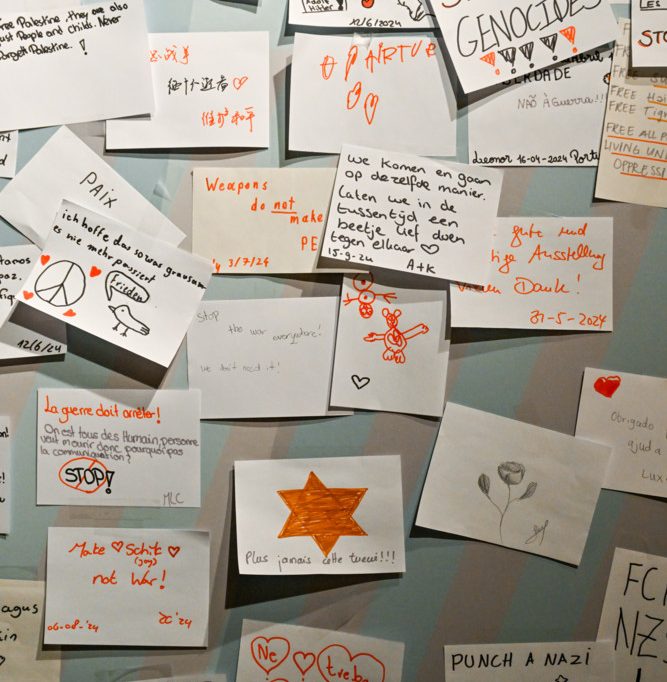 Free Palestine, they are also
just People and Childs. Never
forgett Palestine. !
Adolf
Hitler!
12/6/2024
GENOCIDES
!!!!
STO
VERDADE
NÃO À Guerra!!
Leonor 16-04-2024 Portu
FREE
FREE Tigr
FREE ALL
LIVING UN
OPPRESSI
战争
维护和平
PAIX
ich hoffe das sowas grausam
es nie mehr passiert
Frieden
12/6/24
paz.
Weapons
do not
make
PE
3/7/24
We komen en gaan
op dezelfde manier.
Laten we in de
tussentijd een
beetje lief doen
tegen elkaar ♡
15-9-24
A+K
gute und
tige Ausstellung
Vielen Dank!
31-5-2024
Stop
the war everywhere!
we don't need it!
La guerre doit arrêter!
On est tous des Humain, personne
veut mourir donc pourquoi pas
la communiquation?
STOP!
MLC
Obrigado
ajuda
Lux
Plus jamais cette tuerie!!!
Make ♡ Schitt ♡
(joy)
not War!
06-08-'24
ZC '24
agus
in
Ne ♡ treba
PUNCH A NAZI
FC
NZ